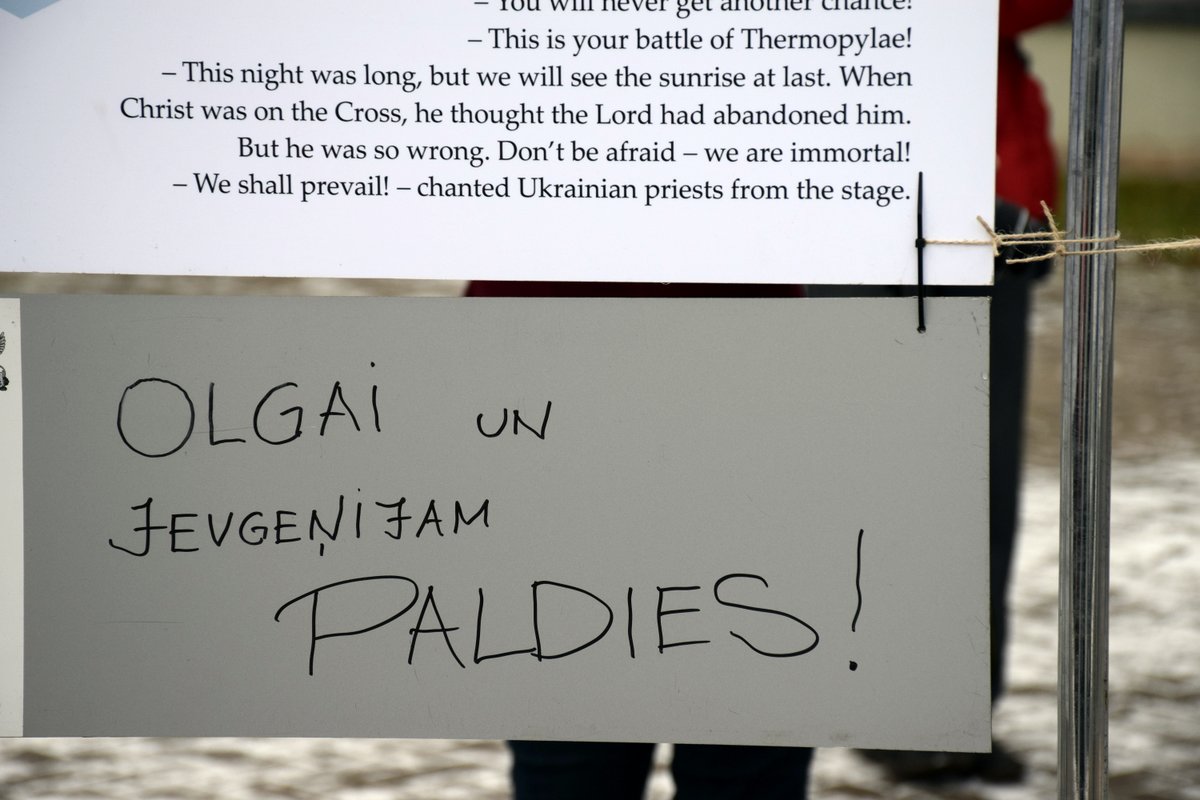 – You will never get another chance!
– This is your battle of Thermopylae!
– This night was long, but we will see the sunrise at last. When
Christ was on the Cross, he thought the Lord had abandoned him.
But he was so wrong. Don’t be afraid – we are immortal!
– We shall prevail! – chanted Ukrainian priests from the stage.
OLGAi UN
JEVGEŅiJAM
PALDIES!